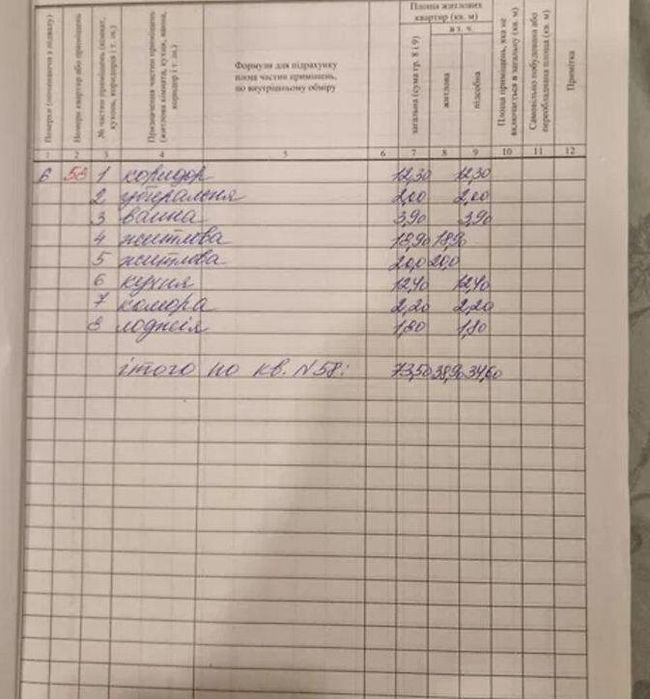 Поверхи (починаючи з підвалу)
Номери квартир або приміщень
№ частин приміщень (кімнат, кухонь, коридорів і т. ін.)
Призначення частин приміщень (житлова кімната, кухня, ванна, коридор і т. ін.)
Формули для підрахунку площ частин приміщень, по внутрішньому обміру
Площа житлових квартир (кв. м)
загальна (сума гр. 8 і 9)
в т. ч.
житлова
підсобна
Площа приміщень, яка не включається в загальну (кв. м)
Самовільно побудована або переобладнана площа (кв. м)
Примітка
1 2 3 4 5 6 7 8 9 10 11 12
6 58 1 коридор 12,30 12,30
2 убиральня 2,00 2,00
3 ванна 3,90 3,90
4 житлова 18,90 18,90
5 житлова 20,0 20,0
6 кухня 12,40 12,40
7 комора 2,20 2,20
8 лоджія 1,80 1,80
ітого по кв. N58: 73,50 38,90 34,60